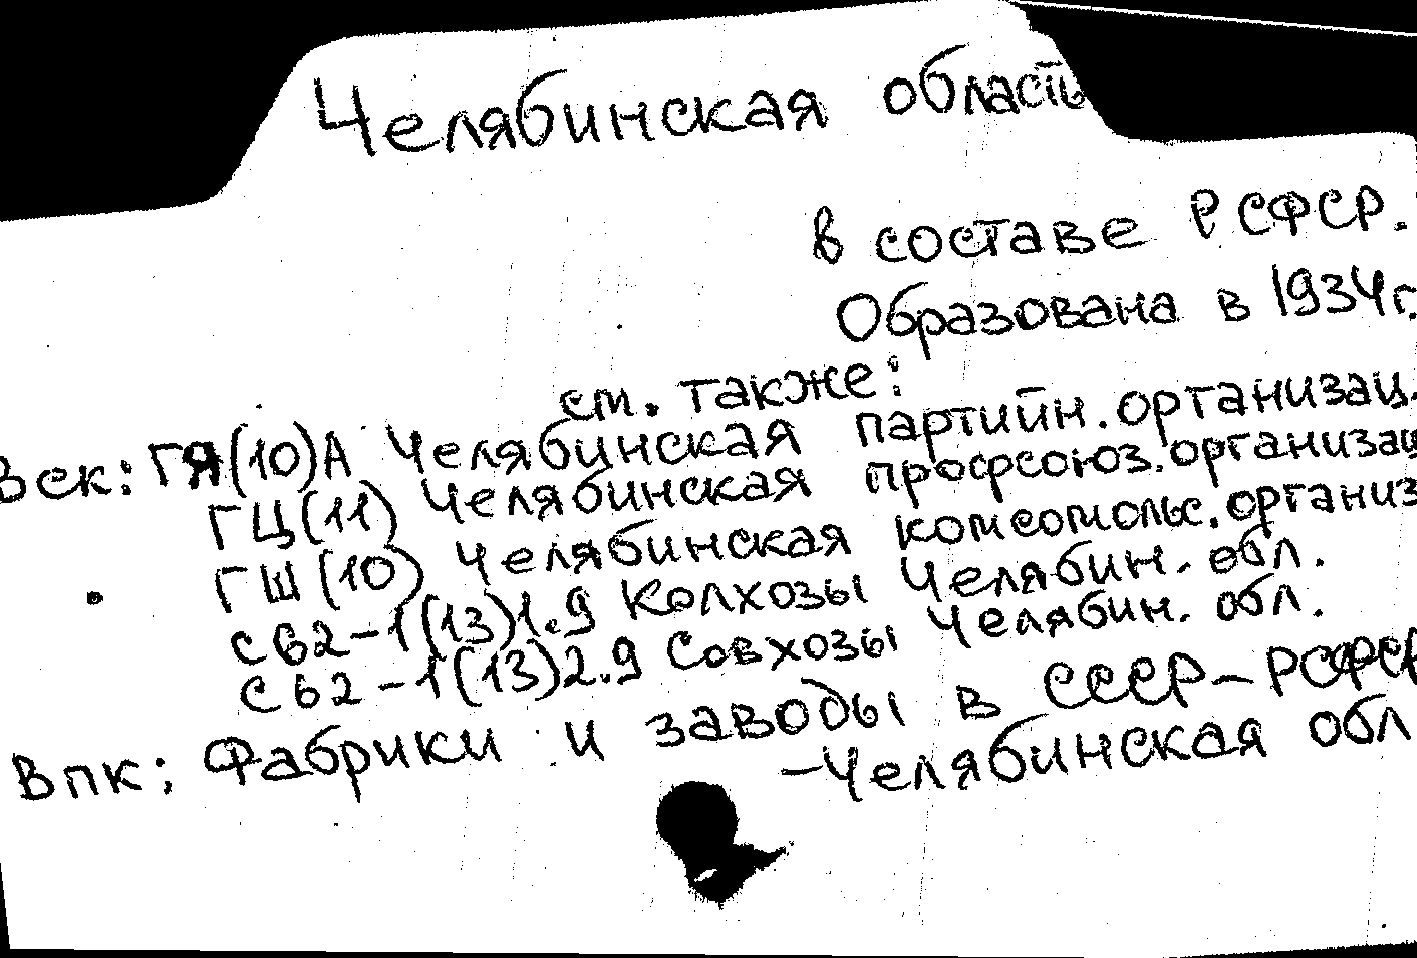 Челябинская область
в составе РСФСР.
Образована в 1934г.
см. также:
Вск: ГЯ(10)А Челябинская партийн. организац.
ГЦ(11) Челябинская профсоюз. организац
ГШ(10) Челябинская комсомольс. организ
С62-1(13)1.9 Колхозы Челябин. обл.
С62-1(13)2.9 Совхозы Челябин. обл.
Впк: Фабрики и заводы в СССР-РСФСР
-Челябинская обл